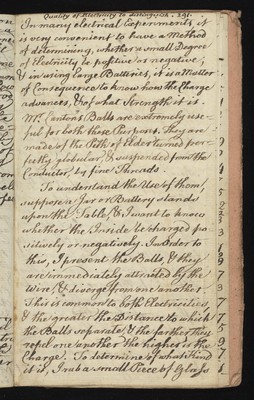 Quality of Electricity to distinguish. 291.
In many electrical Experiments, it
is very convenient to have a Method
of determining, whether a small Degree
of Electricity be positive or negative;
& in using large Batteries, it is a Matter
of Consequence to know how the Charge
advances, & of what Strength it is.
Mr. Canton's Balls are extremely use-
ful for both these Purposes. They are
made of the Pith of Elder turned per-
fectly globular, & suspended from the
Conductor, by fine Threads.
To understand the Use of them,
suppose a Jar or Battery stands
upon the Table, & I want to know
whether the Inside be charged po-
sitively or negatively. In order to
this, I present the Balls, & they
are immediately attracted by the
Wire, & diverge from one another.
This is common to both Electricities,
& the greater the Distance to which
the Balls separate, & the farther they
repel one another the higher is the
Charge. To determine of what Kind
it is, I rub a small Piece of Glass